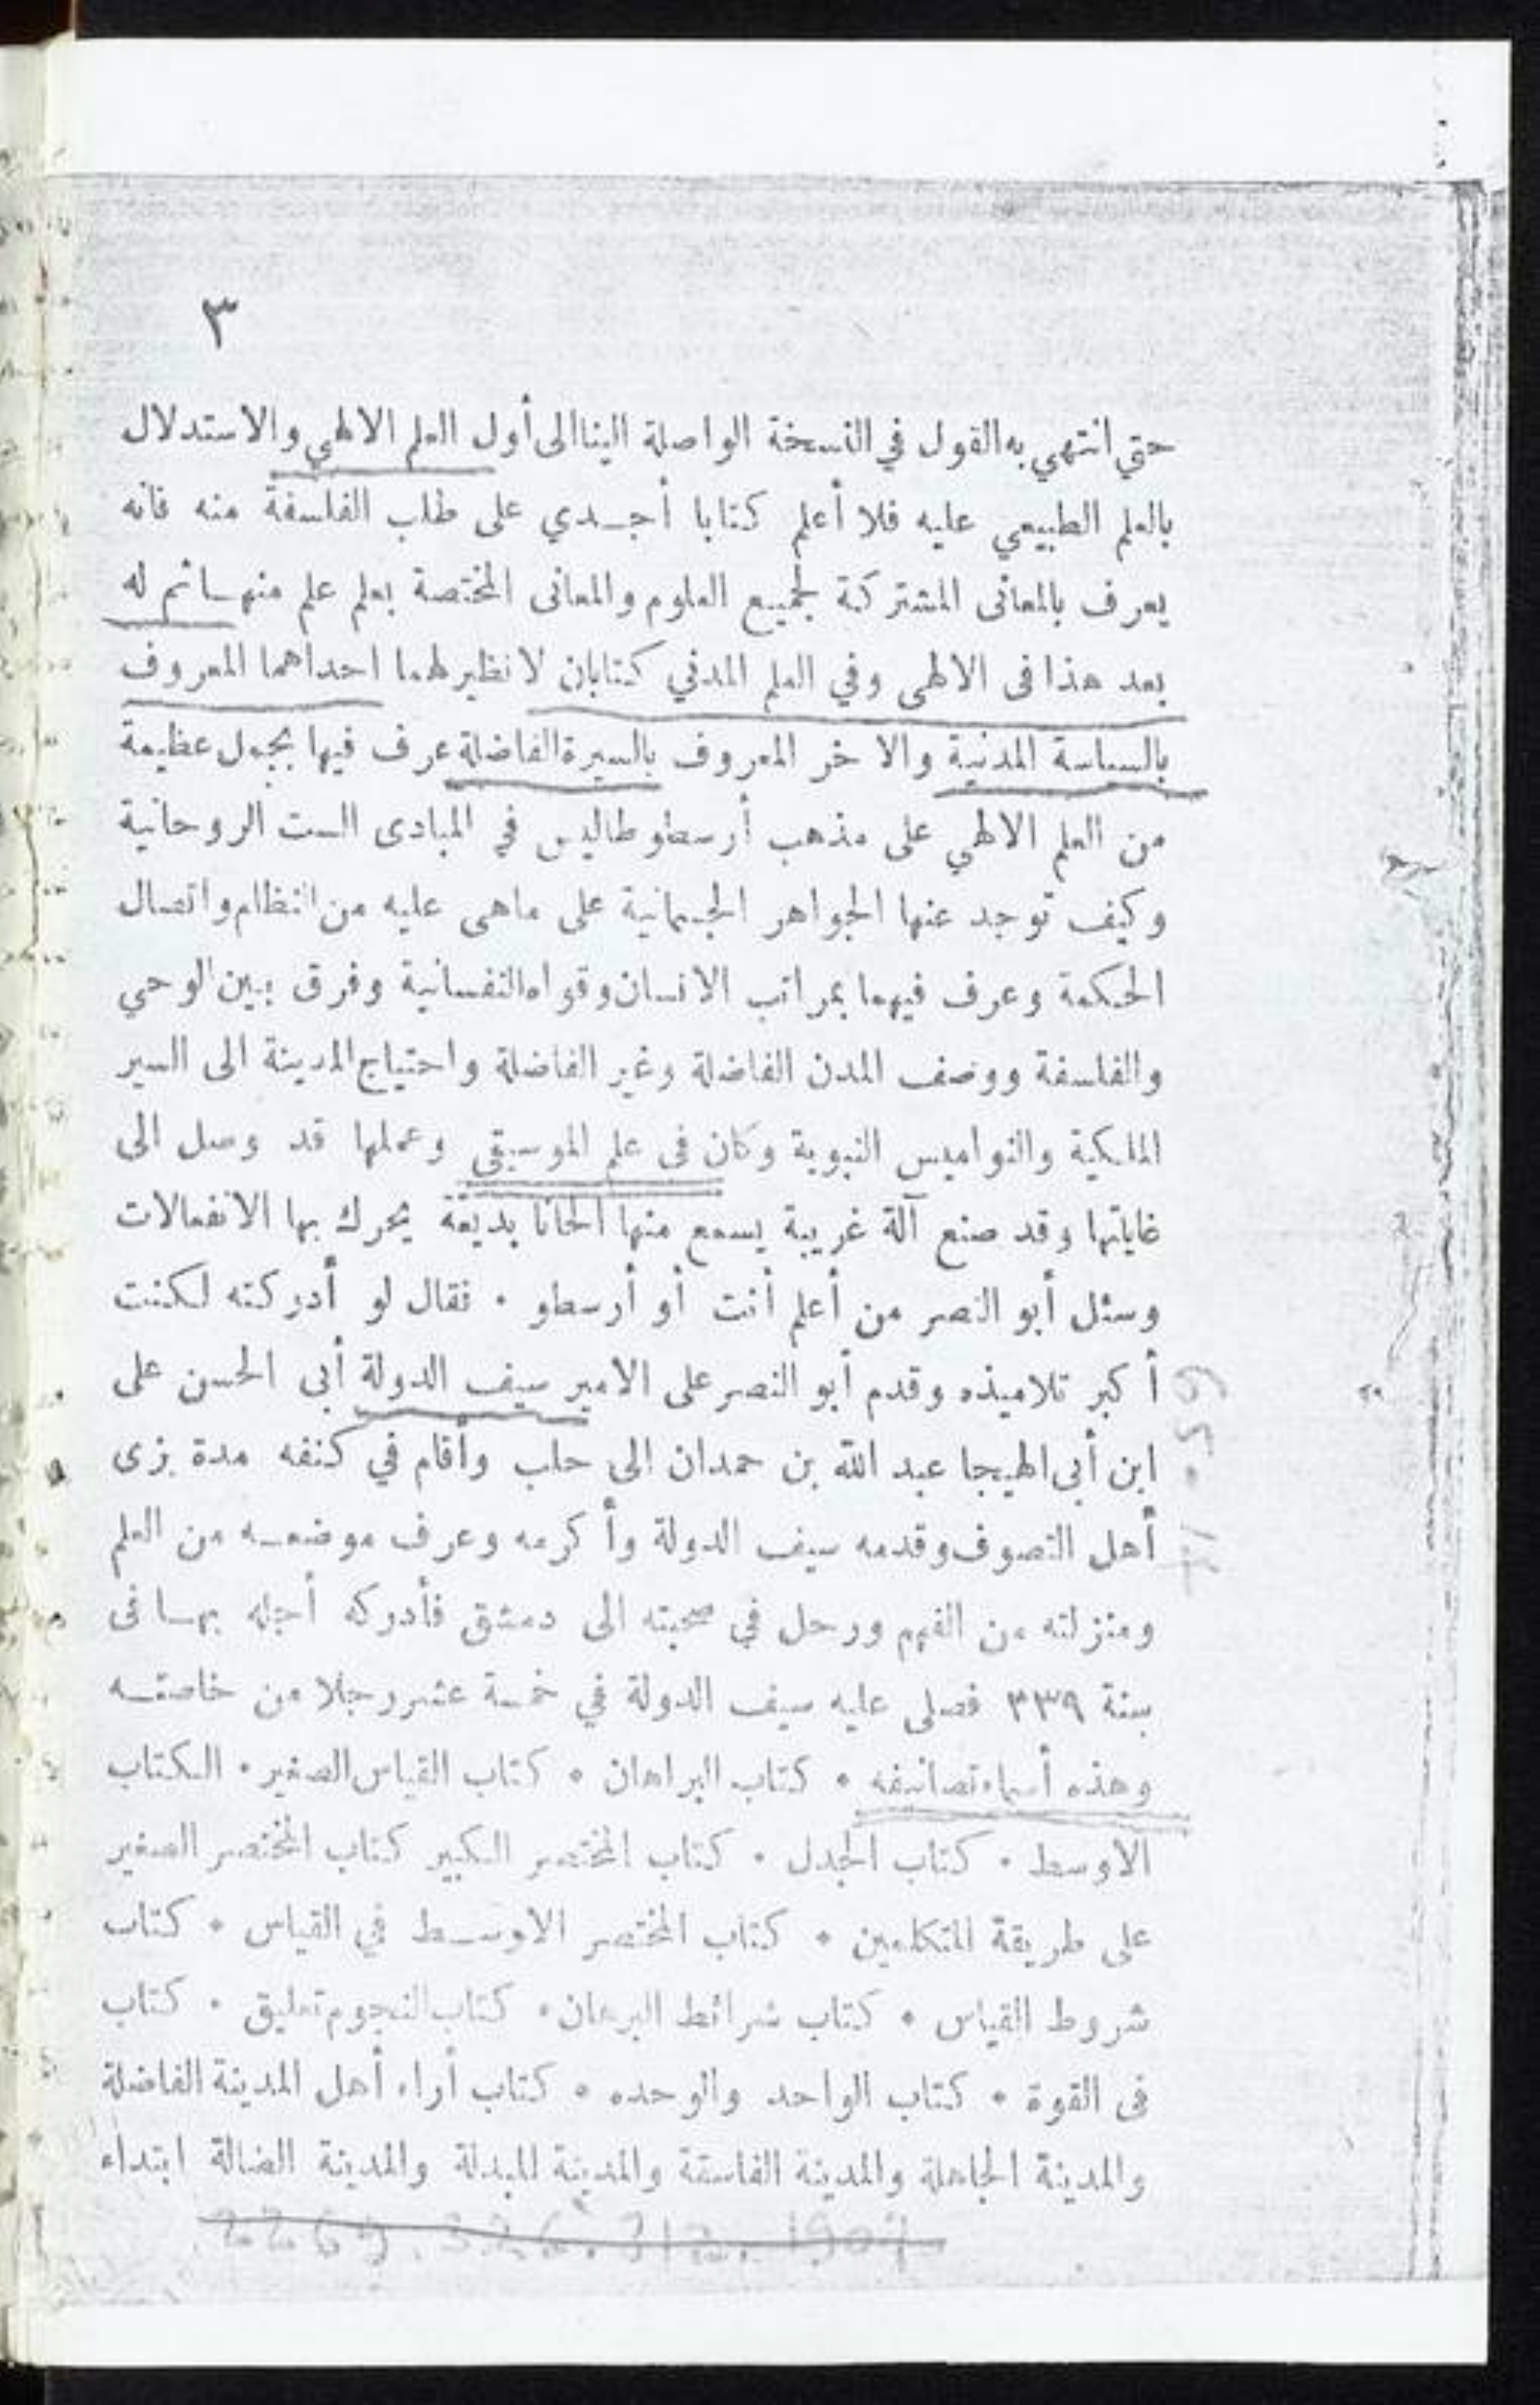 ٣
حتي انتهي به القول في النسخة الواصلة الينا الى أول العلم الالهي والاستدلال
بالعلم الطبيعي عليه فلا أعلم كتابا أجـدي على طلب الفلسفة منه فانه
يعرف بالمعانى المشتركة لجميع العلوم والمعانى المختصة بعلم علم منها ثم له
بعد هذا فى الالهى وفي العلم المدني كتابان لا نظير لهما احداهما المعروف
بالسياسة المدنية والاخر المعروف بالسيرة الفاضلة عرف فيها بجمل عظيمة
من العلم الالهي على مذهب أرسطوطاليس في المبادى الست الروحانية
وكيف توجد عنها الجواهر الجسمانية على ماهى عليه من النظام واتصال
الحكمة وعرف فيهما بمراتب الانسان وقواه النفسانية وفرق بين الوحي
والفلسفة ووصف المدن الفاضلة وغير الفاضلة واحتياج المدينة الى السير
الملكية والنواميس النبوية وكان فى علم الموسيقى وعملها قد وصل الى
غايتها وقد صنع آلة غريبة يسمع منها الحانا بديعة يحرك بها الانفعالات
وسئل أبو النصر من أعلم أنت أو أرسطو ٠ فقال لو أدركته لكنت
أكبر تلاميذه وقدم أبو النصر على الامير سيف الدولة أبى الحسن على
ابن أبى الهيجا عبد الله بن حمدان الى حلب وأقام في كنفه مدة بزى
أهل التصوف وقدمه سيف الدولة وأكرمه وعرف موضعـه من العلم
ومنزلته من الفهم ورحل في صحبته الى دمشق فأدركه أجله بهـا فى
سنة ٣٣٩ فصلى عليه سيف الدولة في خمسة عشر رجلا من خاصتـه
وهذه أسماء تصانيفه ٠ كتاب البراهان ٠ كتاب القياس الصغير ٠ الكتاب
الاوسط ٠ كتاب الجدل ٠ كتاب المختصر الكبير كتاب المختصر الصغير
على طريقة المتكلمين ٠ كتاب المختصر الاوسـط في القياس ٠ كتاب
شروط القياس ٠ كتاب شرائط البرهان ٠ كتاب النجوم تعليق ٠ كتاب
فى القوة ٠ كتاب الواحد والوحده ٠ كتاب أراء أهل المدينة الفاضلة
والمدينة الجاهلة والمدينة الفاسقة والمدينة المبدلة والمدينة الضالة ابتداء
2269.326.312.1907